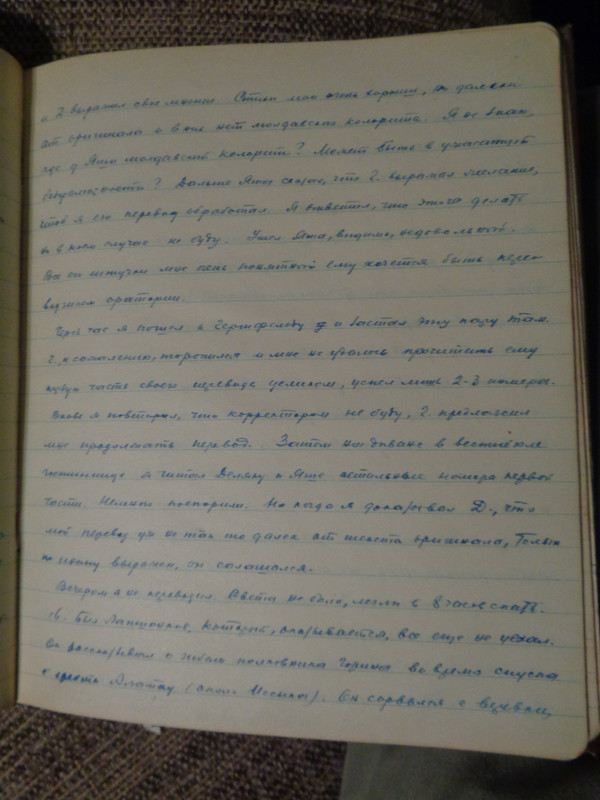 и Г. выражал свое мнение. Стихи мои очень хороши, но далеки
от оригинала и в них нет молдавского колорита. Я не знаю,
где у Яши молдавский колорит? Может быть в ужасающей
бездомности? Дальше Яша сказал, что Г. выражал желание,
чтоб я его перевод обработал. Я ответил, что этого делать
ни в коем случае не буду. Ушел Яша, видимо, недовольный.
мне очень понятной ему хочется быть пере-
водчиком оратории.
Через час я пошел к Гершфельду и застал эту пару там.
Г., к сожалению, торопился и мне не удалось прочитать ему
первую часть своего перевода целиком, успел лишь 2-3 номера.
Вновь я повторил, что корректором не буду, Г. предложил
мне продолжать перевод. Затем на диване в вестибюле
гостиницы я читал Деляну и Яше остальные номера первой
части. Немного поспорили. Но когда я доказывал Д., что
мой перевод уж не так то далек от текста оригинала, только
по иному выражен, он соглашался.
Вечером я не переводил. Света не было, легли в 8 часов спать.
Был Лапшонков, который, оказывается, все еще не уехал.
Он рассказывал о гибели полковника во время спуска
с хребта Алатау (около Иссыка). Он сорвался с